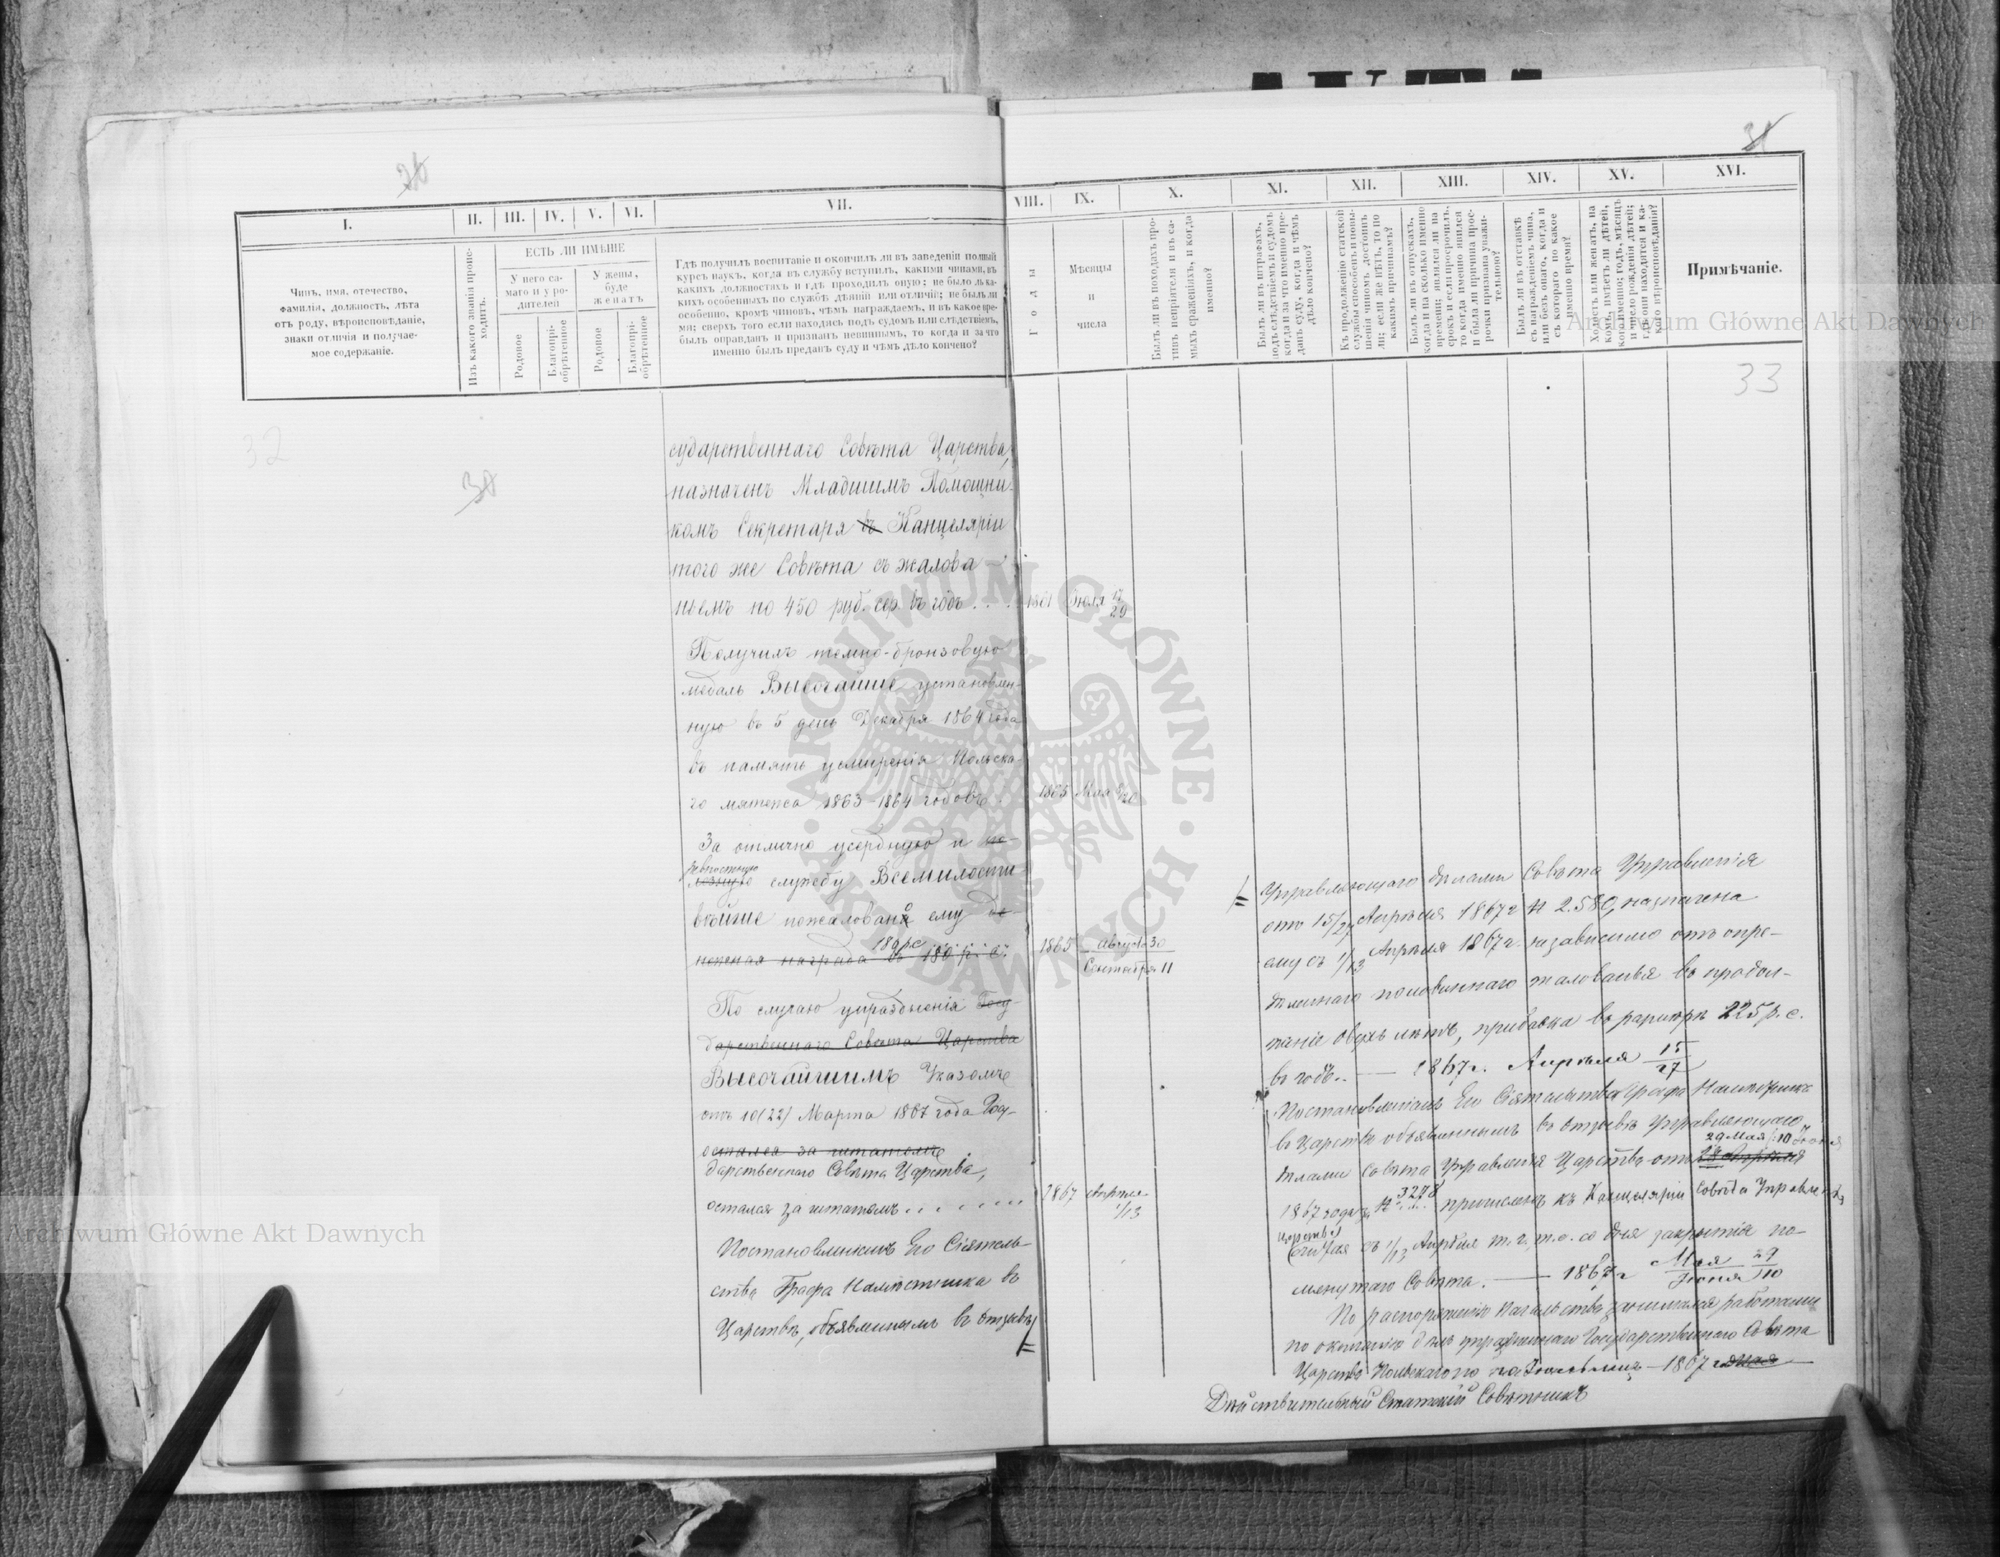 31
33
32
I.
II.
III.
IV.
V.
VI.
VII.
VIII.
IX.
X.
XI.
XII.
XIII.
XIV.
XV.
XVI.
Чинъ, имя, отечество,
фамилія, должность, лѣта
отъ роду, вѣроисповѣданіе,
знаки отличія и получае-
мое содержаніе.
Изъ какого званія проис-
ходитъ.
ЕСТЬ ЛИ ИМѢНІЕ
У него са-
маго и у ро-
дителей
У жены,
буде
женатъ
Родовое
Благопрі-
обрѣтенное
Родовое
Благопрі-
обрѣтенное
Гдѣ получилъ воспитаніе и окончилъ ли въ заведеніи полный
курсъ наукъ, когда въ службу вступилъ, какими чинами, въ
какихъ должностяхъ и гдѣ проходилъ оную; не было ль ка-
кихъ особенныхъ по службѣ дѣяній или отличій; не былъ ли
особенно, кромѣ чиновъ, чѣмъ награждаемъ, и въ какое вре-
мя; сверхъ того если находясь подъ судомъ или слѣдствіемъ,
былъ оправданъ и признанъ невиннымъ, то когда и за что
именно былъ преданъ суду и чѣмъ дѣло кончено?
Годы
Мѣсяцы
и
числа
Былъ ли въ походахъ про-
тивъ непріятеля и въ са-
мыхъ сраженіяхъ, и когда
именно?
Былъ ли въ штрафахъ,
подъ слѣдствіемъ и судомъ
когда и за что именно пре-
данъ суду, когда и чѣмъ
дѣло кончено?
Къ продолженію статской
службы способенъ и повы-
шенія чиномъ достоинъ
ли; если же нѣтъ, то по
какимъ причинамъ?
Былъ ли въ отпускахъ,
когда и на сколько именно
времени; явился ли на
срокъ и если просрочилъ,
то когда именно явился
и была ли причина прос-
рочки признана уважи-
тельною?
Былъ ли въ отставкѣ
съ награжденіемъ чина,
или безъ онаго, когда и
съ котораго по какое
именно время?
Холостъ или женатъ, на
комъ, имѣетъ ли дѣтей,
кого именно; годъ, мѣсяцъ
и число рожденія дѣтей;
гдѣ они находятся и ка-
кого вѣроисповѣданія?
Примѣчаніе.
сударственнаго Совѣта Царства,
назначенъ Младшимъ Помощни-
комъ Секретаря въ Канцеляріи
того же Совѣта съ жалова-
ньемъ по 450 руб. сер. въ годъ . . . 1861 Іюля 17/29
Получилъ темно-бронзовую
медаль Высочайше установлен-
ную въ 5 день Декабря 1864 года
въ память усмиренія Польска-
го мятежа 1863-1864 годовъ. 1865 Мая
За отлично усердную и по-
ревностную
лезную службу Всемилости
вѣйше пожаловано ему де-
180 рс
нежная награда въ 180 р. с. 1865 Августа 30
Сентября 11
По случаю упраздненія Госу-
дарственнаго Совѣта Царства
Высочайшимъ Указомъ
отъ 10(22) Марта 1867 года Госу-
остался за штатомъ
дарственнаго Совѣта Царства,
остался за штатомъ . . . . . . . . 1867 Апрѣля 1/13
Постановленіемъ Его Сіятель-
ства Графа Намѣстника въ
Царствѣ, объявленнымъ въ отзывѣ
Управляющаго дѣлами Совѣта Управленія
отъ 15/27 Апрѣля 1867 г. N 2.580, назначена
ему съ 1/13 Апрѣля 1867 г. независимо отъ опре-
дѣленнаго половиннаго жалованья въ продол-
женіе двухъ лѣтъ, прибавка въ размѣрѣ 225 р. с.
въ годъ. — 1867 г. Апрѣля 15/27
Постановленіемъ Его Сіятельства Графа Намѣстника
въ Царствѣ объявленнымъ въ отзывѣ Управляющаго
29 Мая/10 Іюня
дѣлами Совѣта Управленія Царства отъ Апрѣля
1867 года за N 3278 причисленъ къ Канцеляріи Совѣта Управленія
Царства
считая съ 1/13 Апрѣля т. г. т. е. со дня закрытія по-
мянутаго Совѣта. — 1867 г. Мая 29
Іюня 10
По распоряженію Начальства занимался работами
по окончанію дѣлъ упраздненнаго Государственнаго Совѣта
Царства Польскаго по 1867
Дѣйствительный Статскій Совѣтникъ
ARCHIWUM GŁÓWNE AKT DAWNYCH
Archiwum Główne Akt Dawnych
Archiwum Główne Akt Dawnych